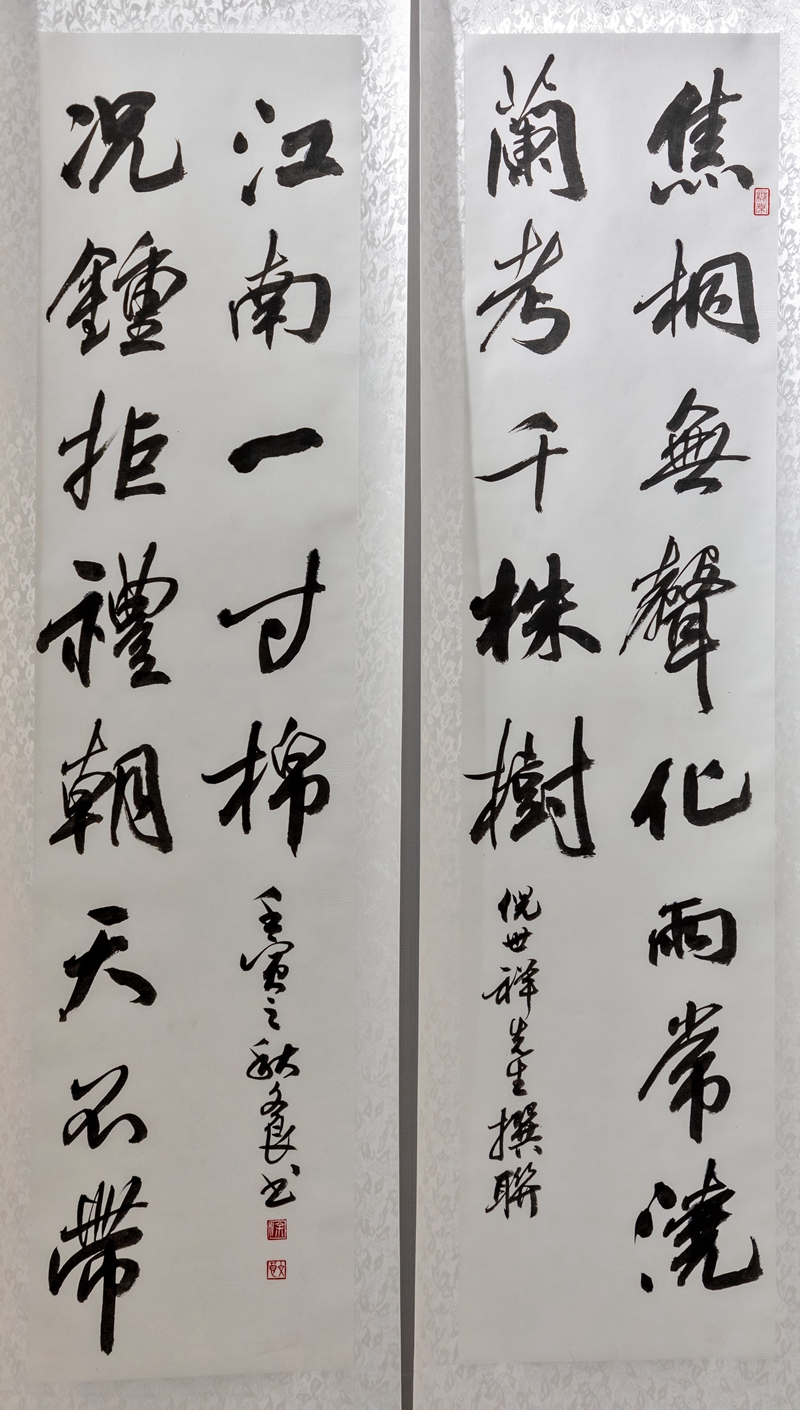 焦桐無聲化雨常澆
蘭考千株樹
倪世祥先生撰聯
況鍾拒禮朝天不帶
江南一寸棉
壬寅之秋文良书